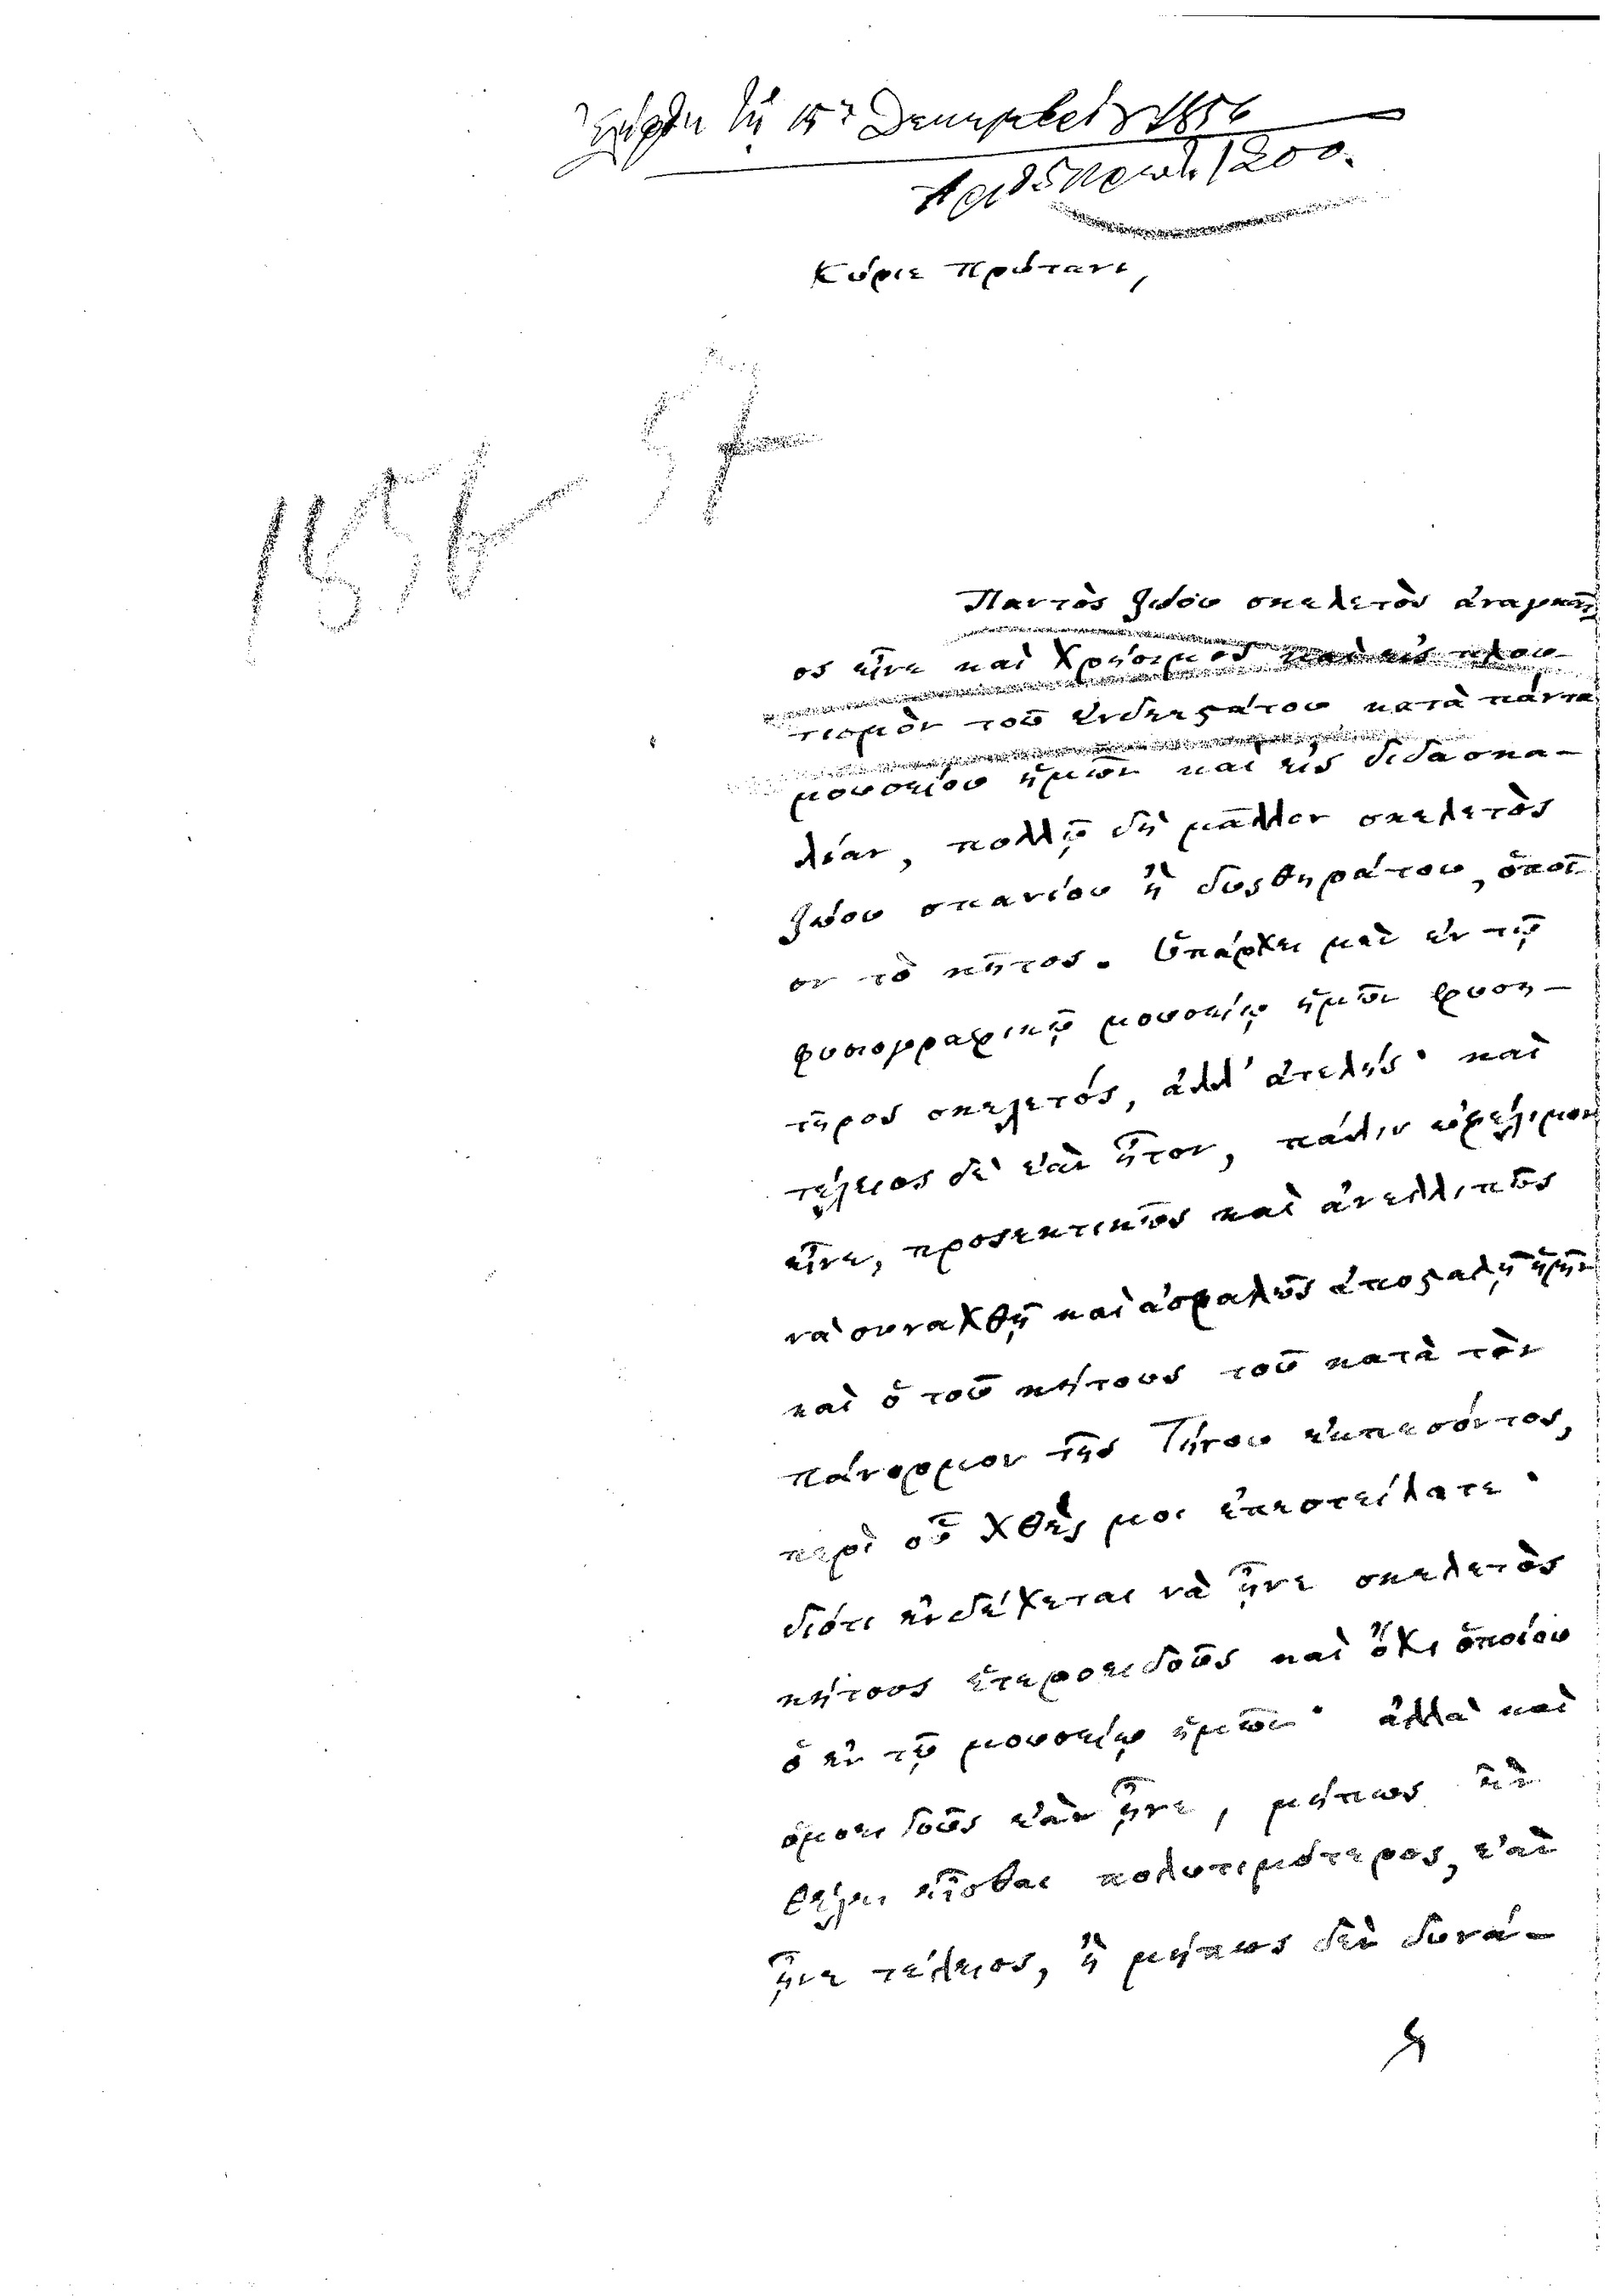 Ἐλήφθη τῇ 15ῃ Δεκεμβρίου 1856
Ἀριθ. Πρωτ. 1200.
Κύριε Πρύτανι,
1856-57
Παντὸς ζώου σκελετὸς ἀναγκαῖ-
ος εἶνε καὶ χρήσιμος καὶ εἰς πλου-
τισμὸν τοῦ ἐνδεεστάτου κατὰ πάντα
μουσείου ἡμῶν καὶ εἰς διδασκα-
λίαν, πολλῷ δὴ μᾶλλον σκελετὸς
ζώου σπανίου ἢ δυσθηράτου, ὁποῖ-
ον τὸ κῆτος. Ὑπάρχει μὲν ἐν τῷ
φυσιογραφικῷ μουσείῳ ἡμῶν φυση-
τῆρος σκελετός, ἀλλ' ἀτελής· καὶ
τέλειος δὲ ἐὰν ἦτον, πάλιν ὠφέλιμον
εἶνε, προσεκτικῶς καὶ ἀνελλιπῶς
νὰ συναχθῇ καὶ ἀσφαλῶς ἀποσταλῇ ἡμῖν
καὶ ὁ τοῦ κήτους τοῦ κατὰ τὸν
πάνορμον τῆς Τήνου ἐκπεσόντος,
περὶ οὗ χθὲς μοι ἐπεστείλατε·
διότι ἐνδέχεται νὰ ἦνε σκελετὸς
κήτους ἑτεροειδοῦς καὶ ὄχι ὁποίου
ὁ ἐν τῷ μουσείῳ ἡμῶν· ἀλλὰ καὶ
ὁμοειδοῦς ἐὰν ἦνε, μήπως δὲν
θέλει εἶσθαι πολυτιμότερος, ἐὰν
ἦνε τέλειος, ἢ μήπως δὲν δυνά-